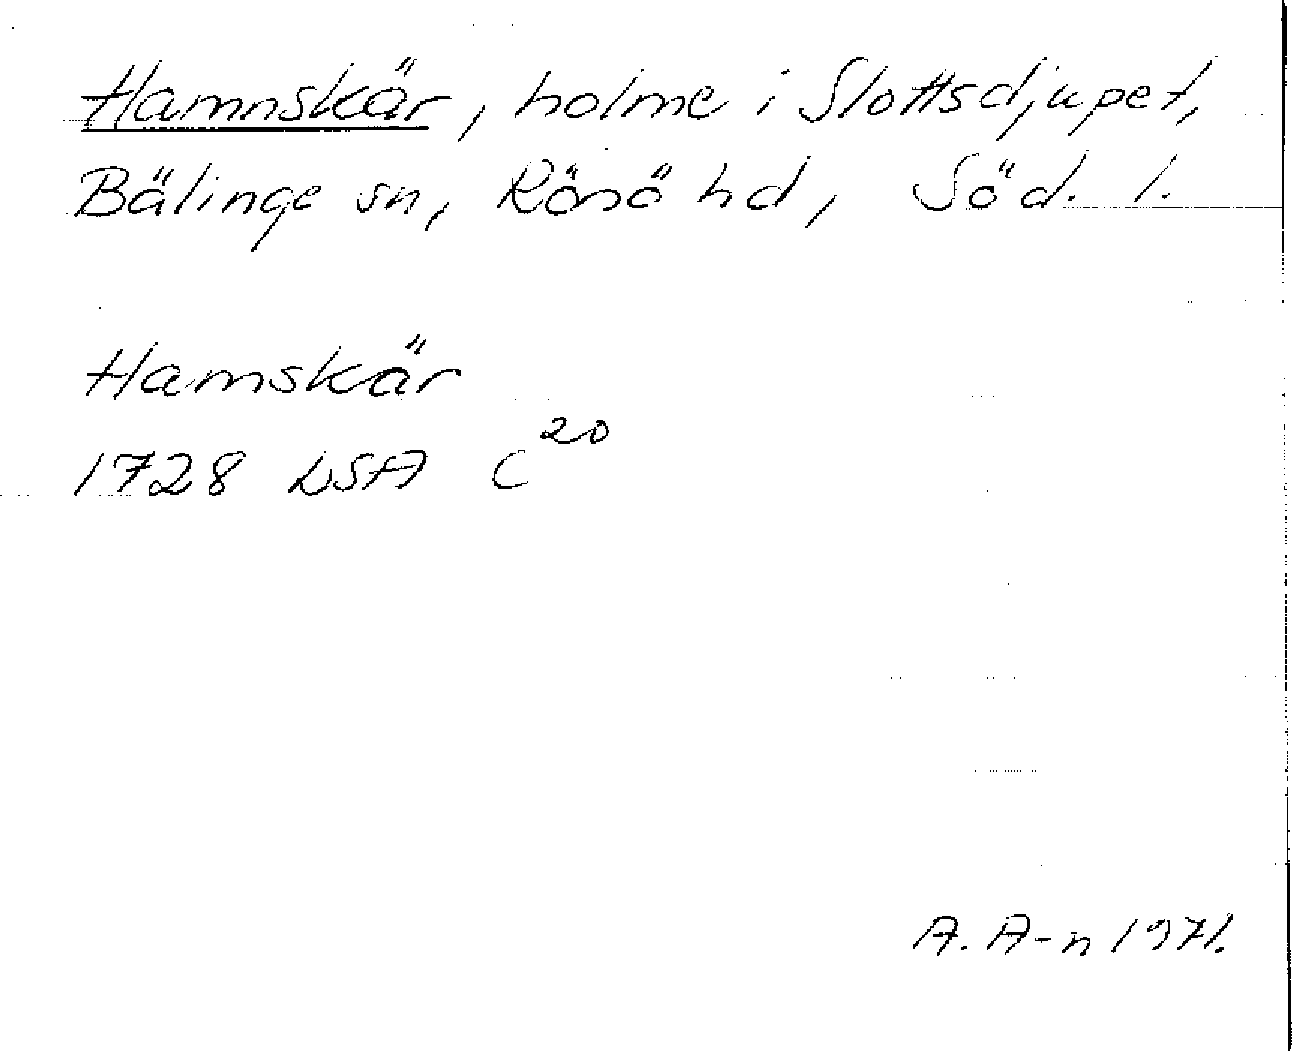 Hamnskär, holme i Slottsdjupet,
Bälinge sn, Rönö hd, Söd. l.
Hamskär
1728 LSA C20
A. A-n 1971.